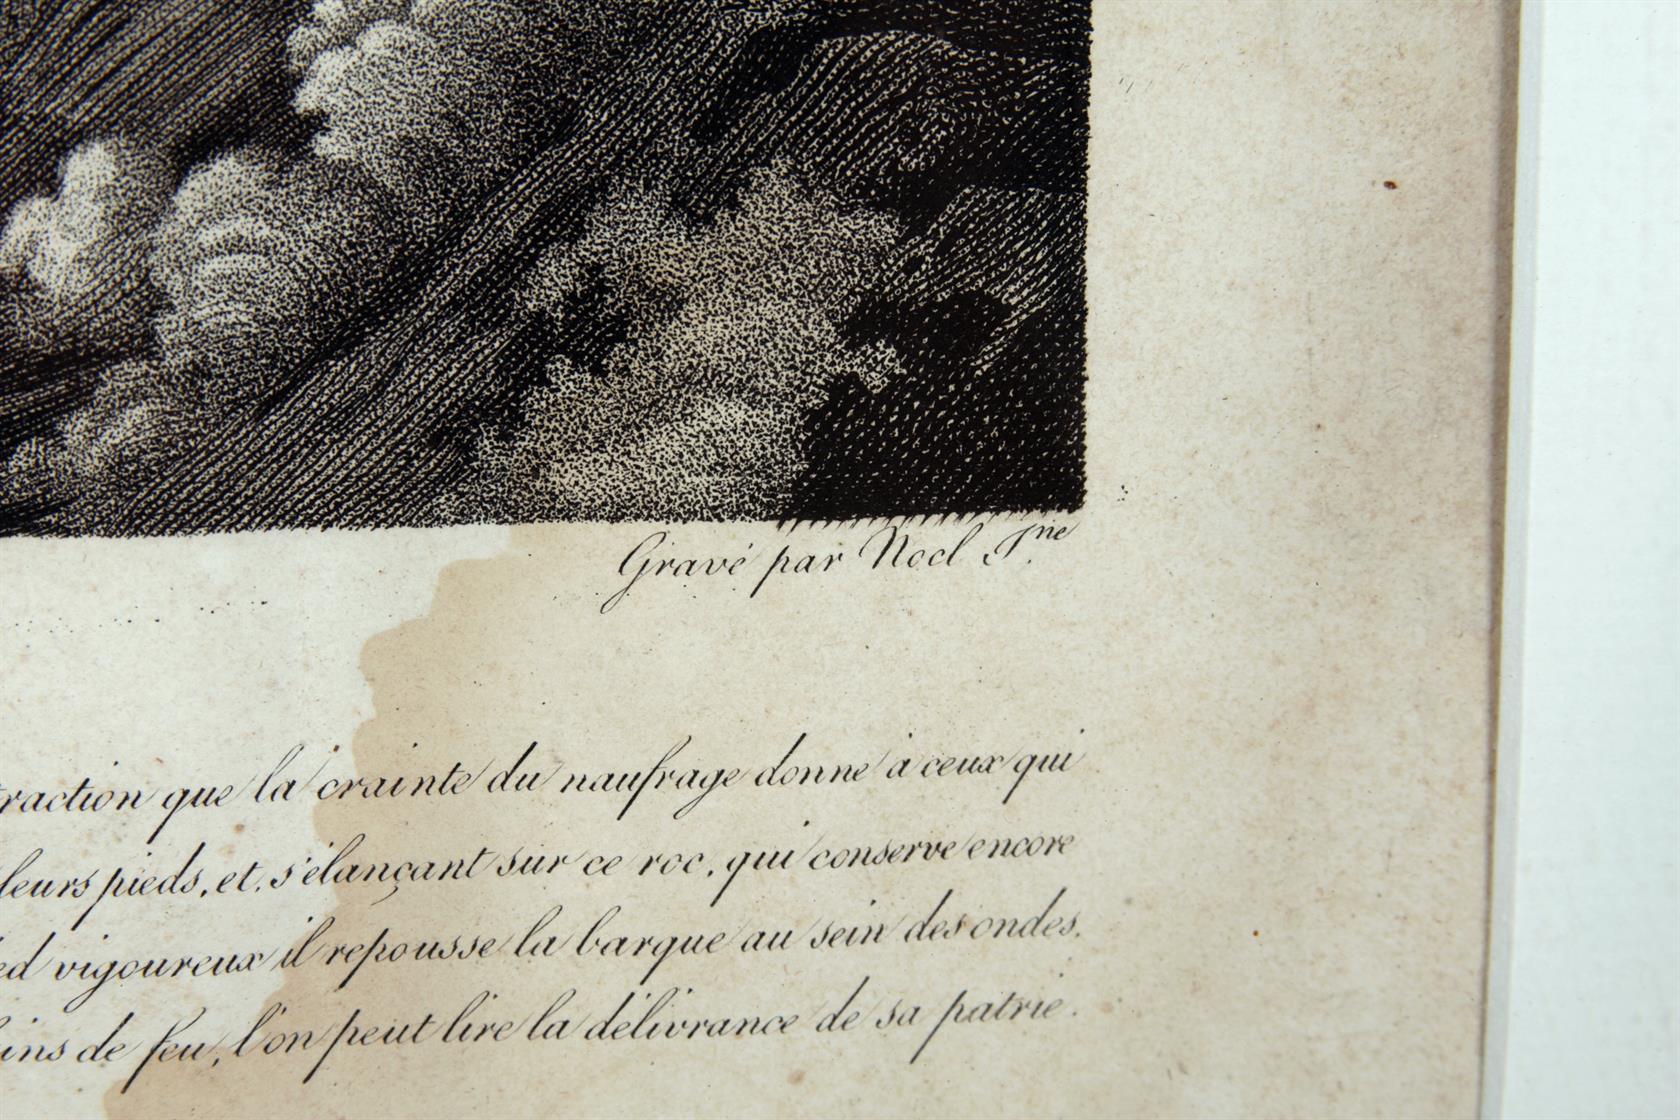 Gravé par Noel J.ne
raction que la crainte du naufrage donne à ceux qui
leurs pieds, et, s'élançant sur ce roc, qui conserve encore
ed vigoureux il repousse la barque au sein des ondes.
ins de feu, l'on peut lire la délivrance de sa patrie.